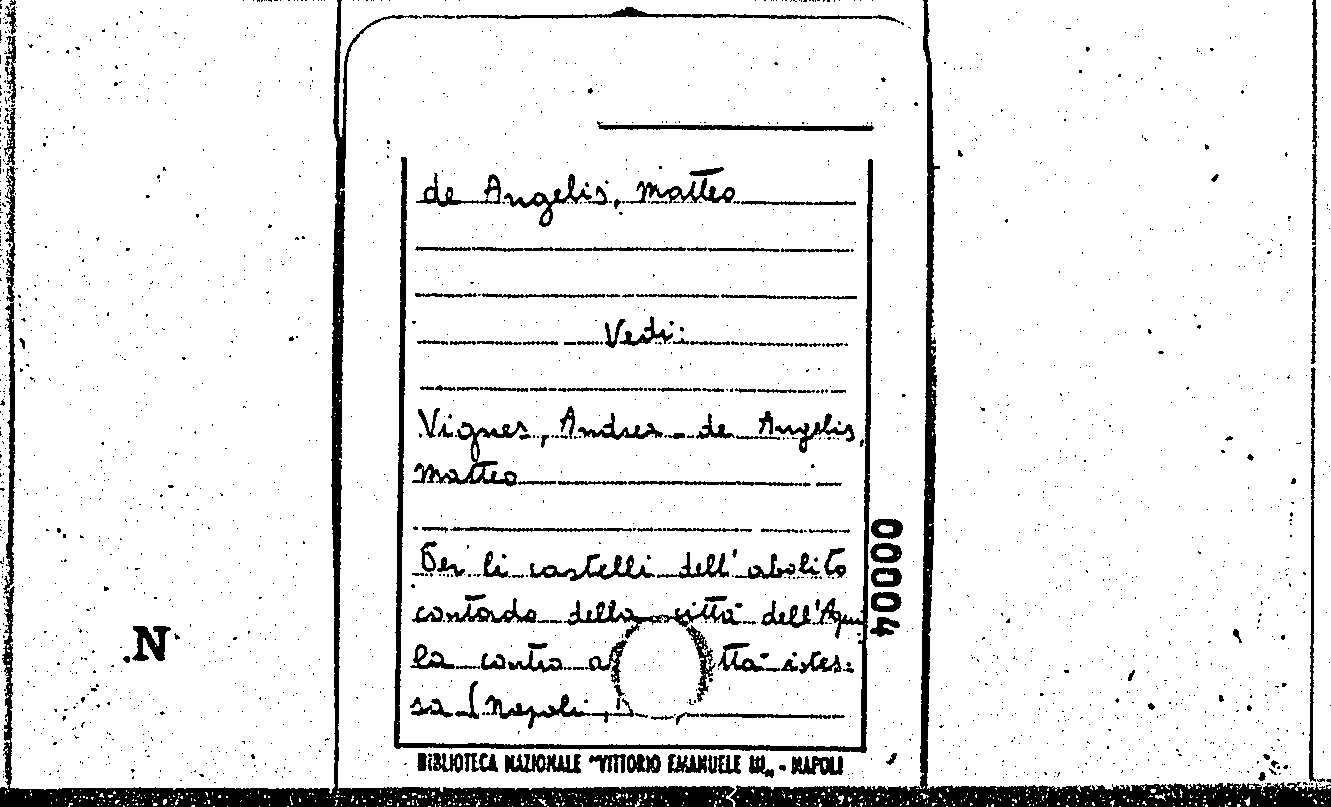 de Angelis, Matteo
Vedi:
Vignes, Andrea - de Angelis,
Matteo
Per li castelli dell'abolito
contado della città dell'Aqui
la contro a ttà istes:
sa [Napoli,
00004
.N
BIBLIOTECA NAZIONALE "VITTORIO EMANUELE III„ - NAPOLI